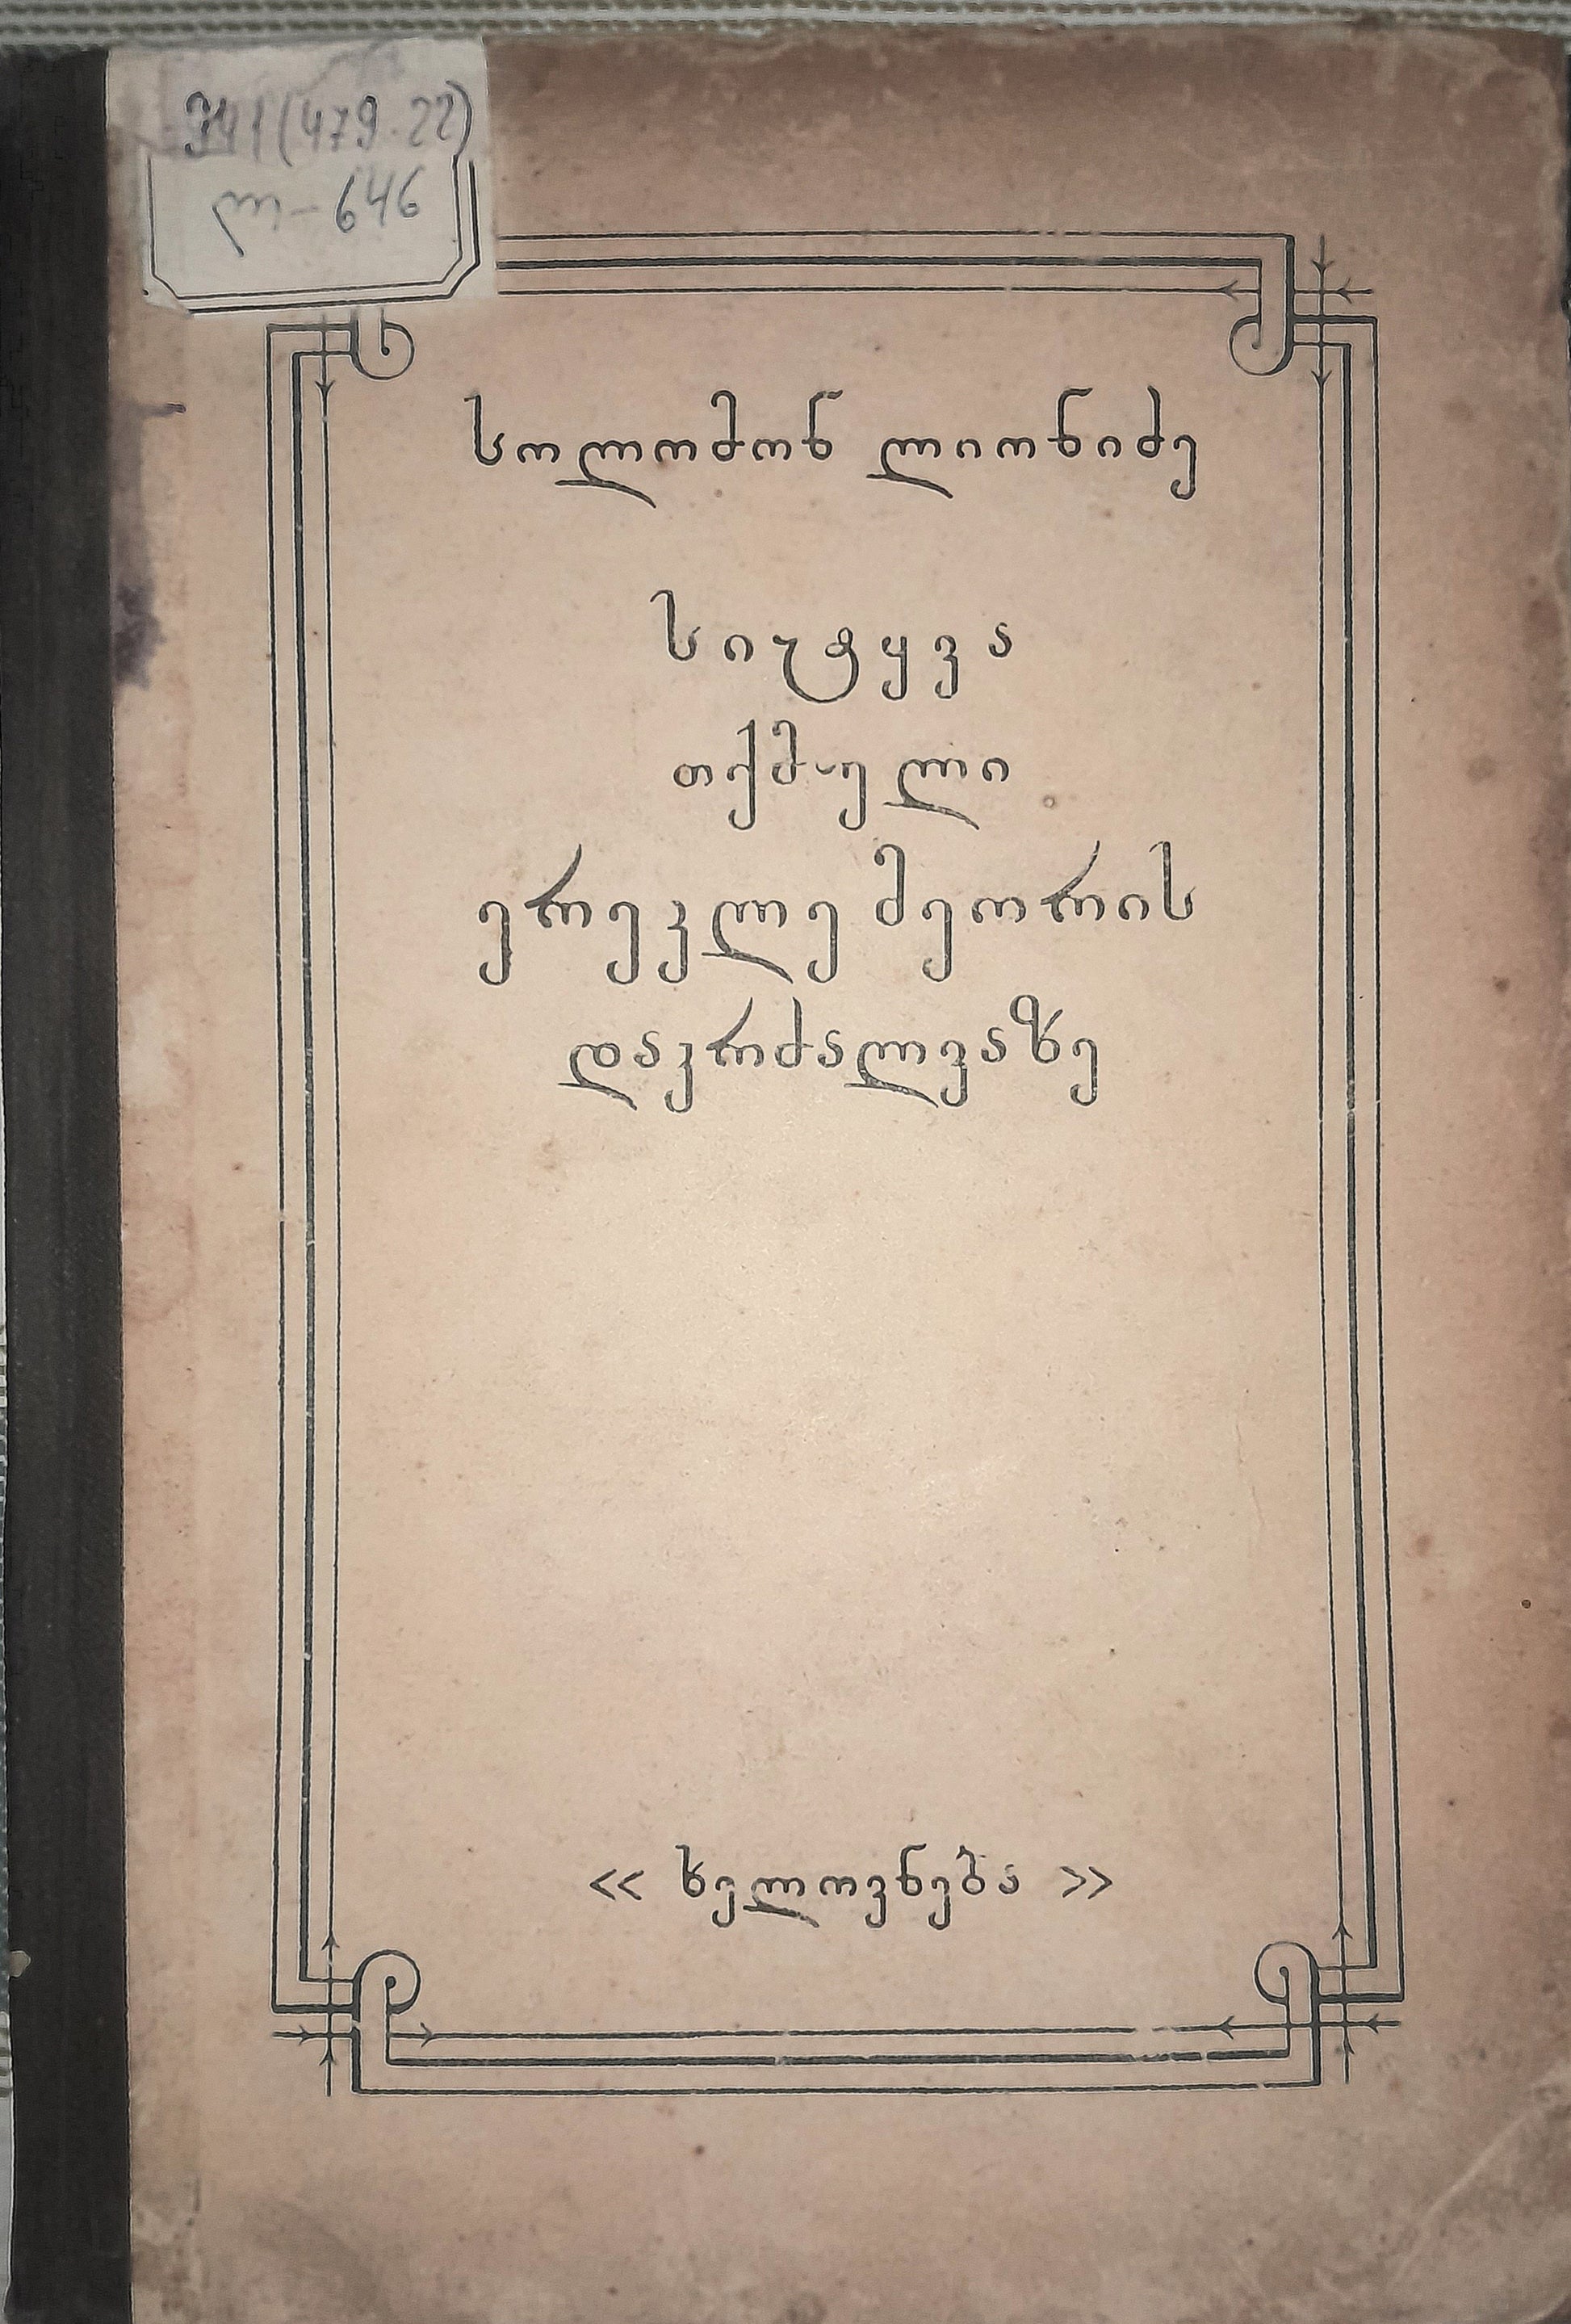 941(479.22)
ლ-646
სოლომონ ლიონიძე
სიტყვა
თქმული
ერეკლე მეორის
დაკრძალვაზე
« ხელოვნება »